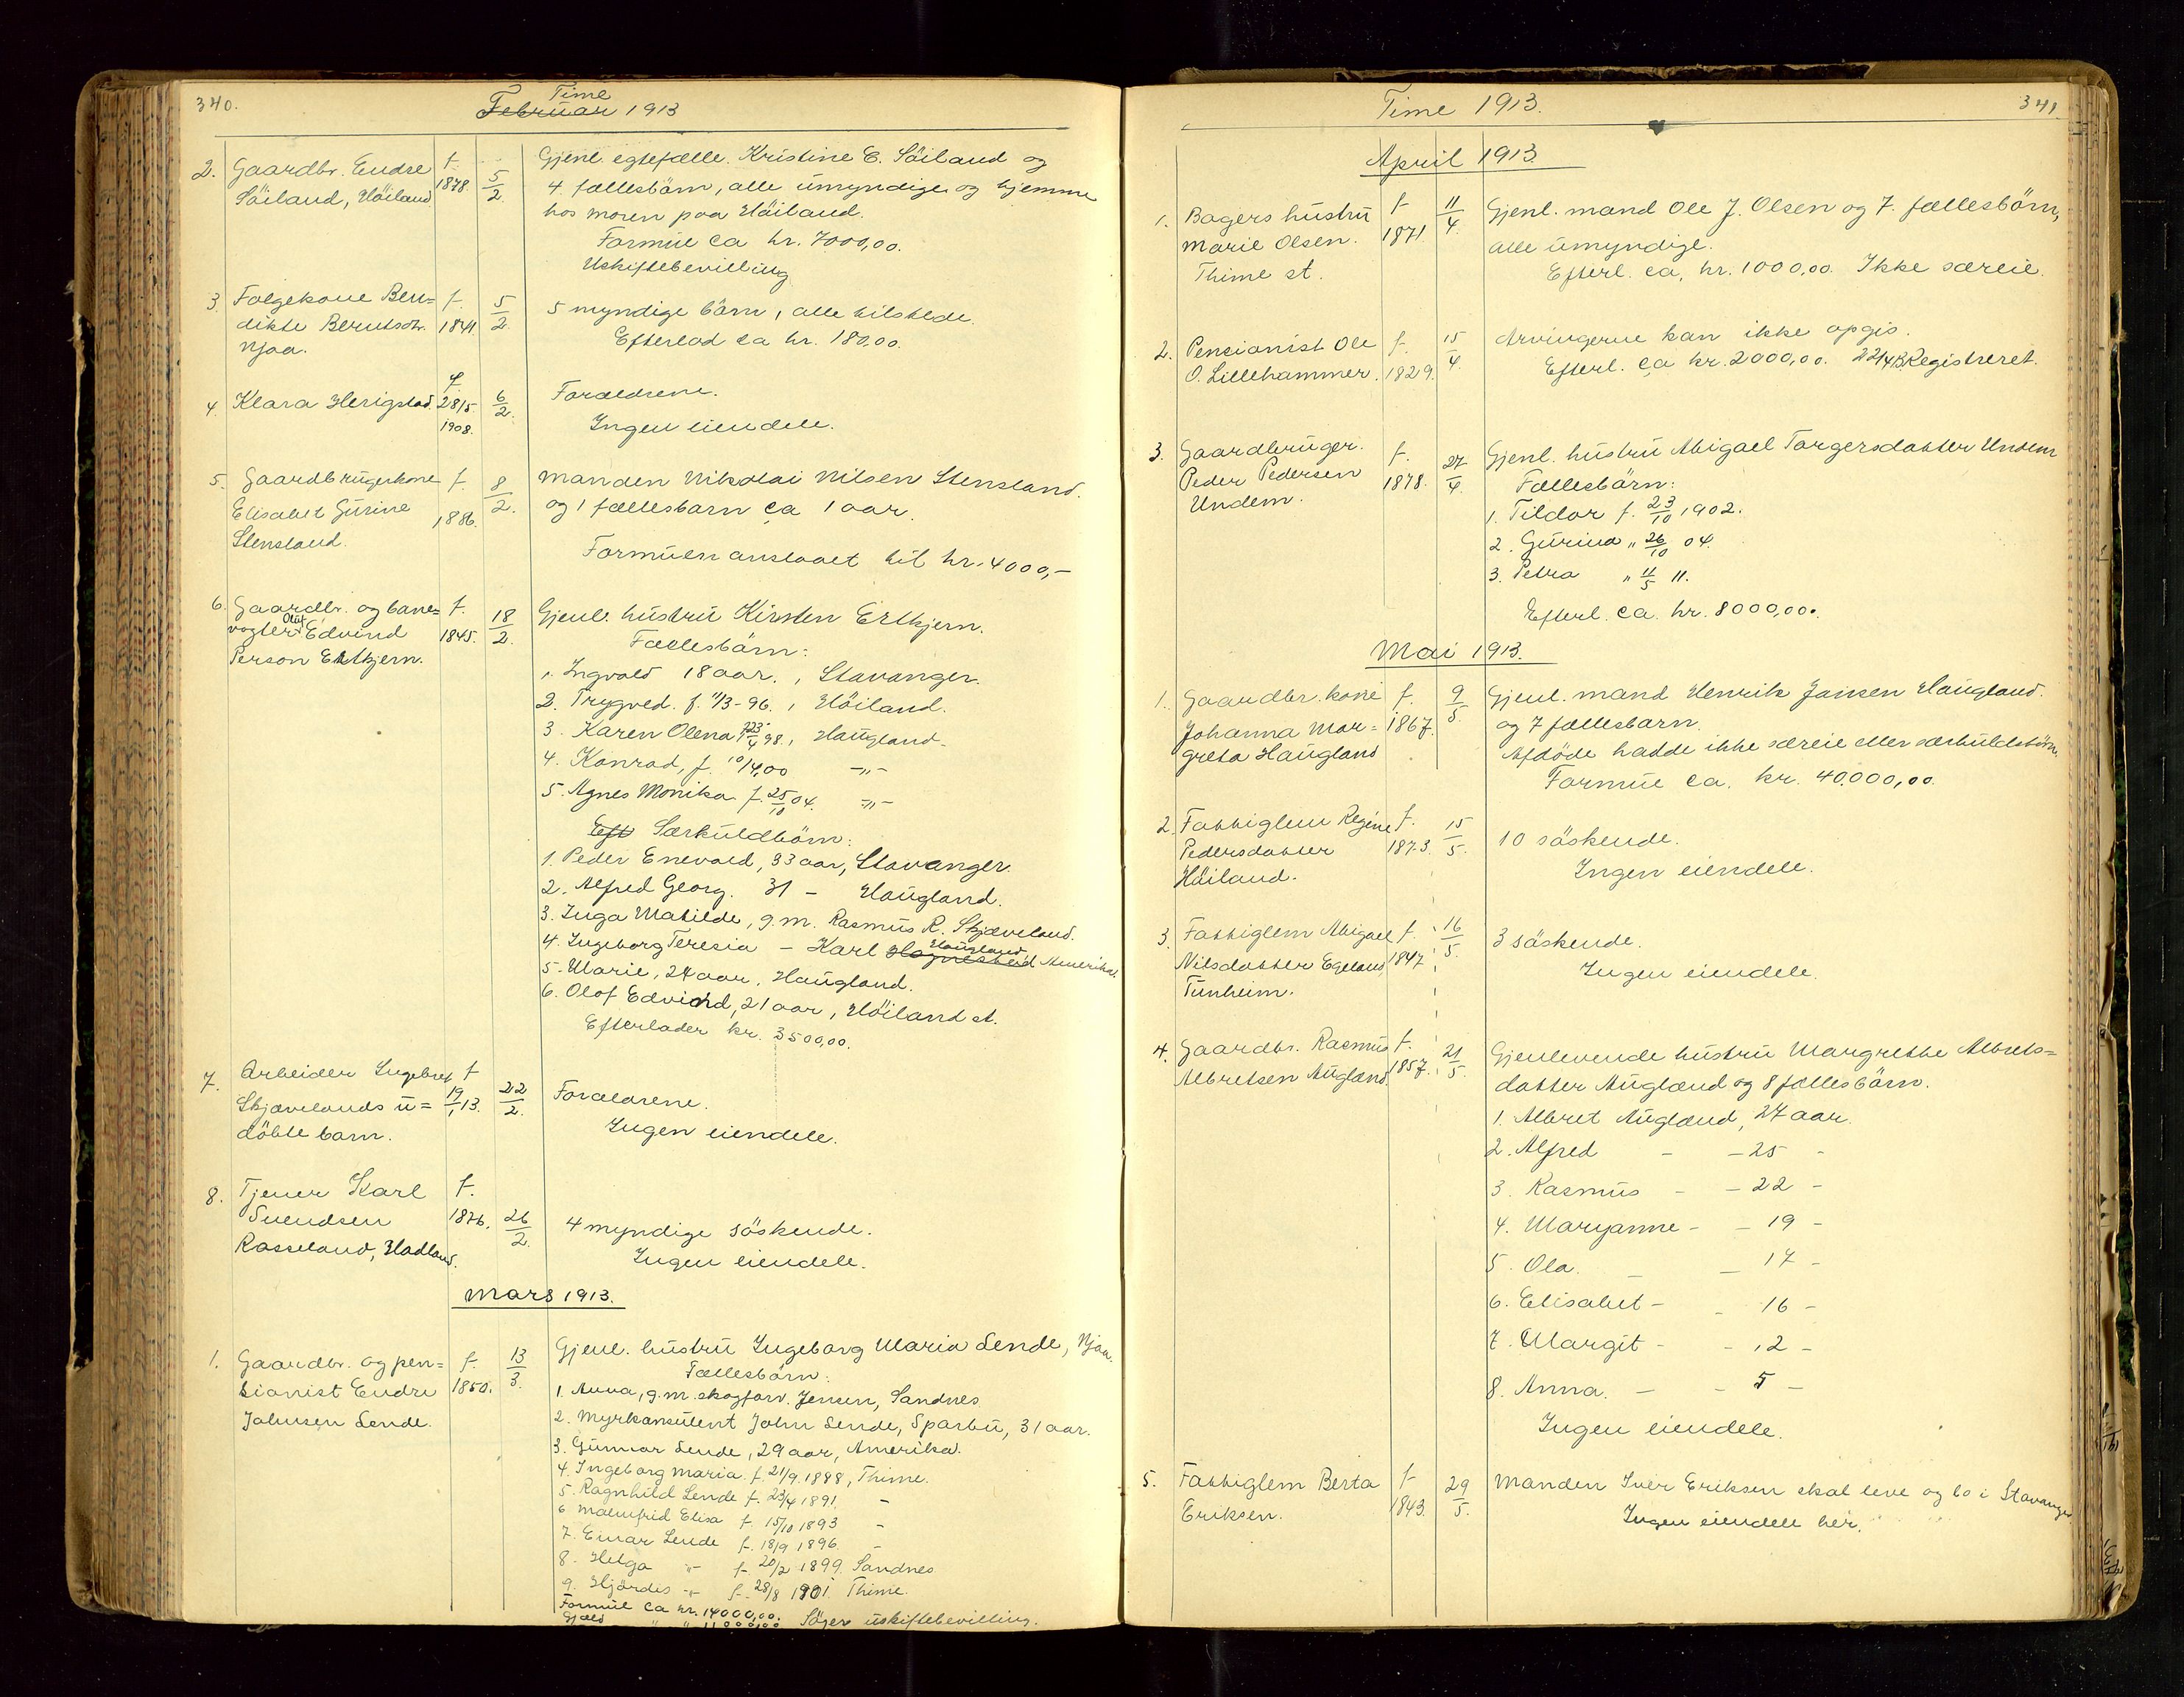 340.
Time
Februar 1913
2. Gaardbr. Endre f. 5/2 Gjenl. egtefælle. Kristine E. Söiland og
Söiland, Höiland 1878. 4 fællesbörn, alle umyndige og hjemme
hos moren paa Höiland.
Formue ca kr. 7000,00.
Uskiftebevilling
3. Folgekone Ben= f. 5/2 5 myndige börn, alle tilstede.
dikte Berntsdtr. 1841 Efterlod ca kr. 180,00.
Njaa.
4. Klara Herigstad. f. 28/5 1908. 6/2. Forældrene.
Ingen eiendele.
5. Gaardbrugerkone f. 8/2. Manden Nikolai Nilsen Stensland.
Elisabet Gurine 1886. og 1 fællesbarn ca 1 aar.
Stensland. Formuen anslaaet til kr. 4000,-
6. Gaardbr. og bane= f. 18/2. Gjenl. hustru Kirsten Ertkjern.
vogter Oluf Edvind 1845. Fællesbörn:
Person Ertkjern.
1. Ingvald 18 aar., Stavanger.
2. Trygved. f. 11/3-96., Höiland.
3. Karen Olena f. 23/4 98., Haugland.
4. Konrad, f. 10/4,00 -"-
5. Agnes Monika f. 25/10 04. -"-
Eft Særkuldbörn:
1. Peder Enevald, 33 aar, Stavanger.
2. Alfred Georg. 31 - Haugland.
3. Inga Matilde, g.m. Rasmus R. Skjæveland.
4. Ingeborg Teresia - Karl Haugland, Amerika.
5. Marie, 24 aar, Haugland.
6. Olof Edvind, 21 aar, Höiland st.
Efterlader kr. 3500,00.
7. Arbeider Ingebret f. 22/2. Forældrene.
Skjævelands u= 19/1 13. Ingen eiendele.
döbte barn.
8. Tjener Karl f.
Svendsen 1876. 26/2. 4 myndige söskende.
Rosseland, Hadland. Ingen eiendele.
Mars 1913.
1. Gaardbr. og pen= f. 13/3. Gjenl. hustru Ingeborg Maria Lende, Njaa.
sionist Endre 1850. Fællesbörn:
Johnsen Lende. 1. Anna, g.m. skogforv. Jensen, Sandnes
2. Myrkonsulent John Lende, Sparbu, 31 aar.
3. Gunnar Lende, 29 aar, Amerika.
4. Ingeborg Maria f. 21/9.1888, Thime.
5. Ragnhild Lende f. 23/4 1891. -
6 Malmfrid Elisa f. 15/10 1893 -
7. Einar Lende f. 18/9 1896. -
8. Helga -"- f. 20/2 1899. Sandnes
9. Hjördis -"- f. 28/8 1901. Thime.
Formue ca kr. 14000,00.
Gjæld " " 11000,00 Söger uskiftebevilling.
Time 1913. 341
April 1913.
1. Bagers hustru f. 11/4. Gjenl. mand Ole J. Olsen og 7 fællesbörn,
Marie Olsen. 1871 alle umyndige.
Thime st. Efterl. ca, kr. 1000,00. Ikke særeie.
2. Pensionist Ole f. 15/4. Arvingerne kan ikke opgis.
O. Lillehammer. 1829. Efterl. ca kr. 2000,00. 22/4 13 Registreret.
3. Gaardbruger. f. 27/4. Gjenl. hustru Abigael Torgersdatter Undem
Peder Pedersen 1878. Fællesbörn:
Undem. 1. Tildor f. 23/10 1902.
2. Gurina " 26/10 04.
3. Petra " 11/5 11.
Efterl. ca. kr. 8000,00.
Mai 1913.
1. Gaardbr. kone f. 9/5. Gjenl. mand Henrik Jansen Haugland.
Johanna Mar= 1867. og 7 fællesbarn.
greta Haugland Afdöde hadde ikke særeie eller særkuldsbörn.
Formue ca. kr. 40.000,00.
2. Fattiglem Regine f. 15/5. 10 söskende.
Pedersdatter 1873. Ingen eiendele.
Höiland.
3. Fattiglem Abigael f. 16/5. 3 söskende.
Nilsdatter Egeland 1847 Ingen eiendele.
Tunheim.
4. Gaardbr. Rasmus f. 21/5. Gjenlevende hustru Margrethe Albrets=
Albretsen Augland 1857. datter Augland og 8 fællesbörn.
1. Albret Augland, 27 aar.
2. Alfred - - 25 -
3. Rasmus - - 22 -
4. Maryanne - - 19 -
5. Ola. - - 17 -
6. Elisabet - - 16 -
7. Margit - - 12 -
8. Anna. - - 5 -
Ingen eiendele.
5. Fattiglem Berta f. 29/5. Manden Iver Eriksen skal leve og bo i Stavanger
Eriksen. 1843. Ingen eiendele her.